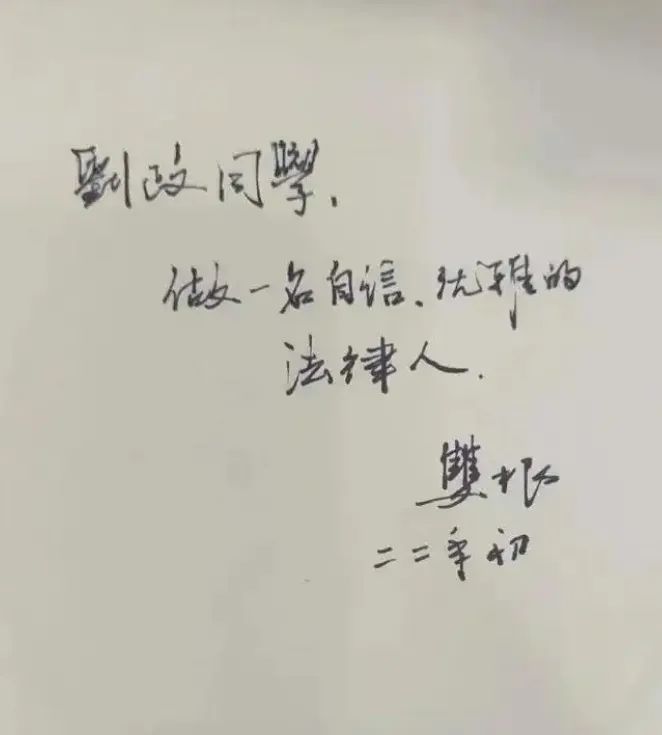 劉政同學,
做一名自信、优雅的
法律人.
雙根
二二年初